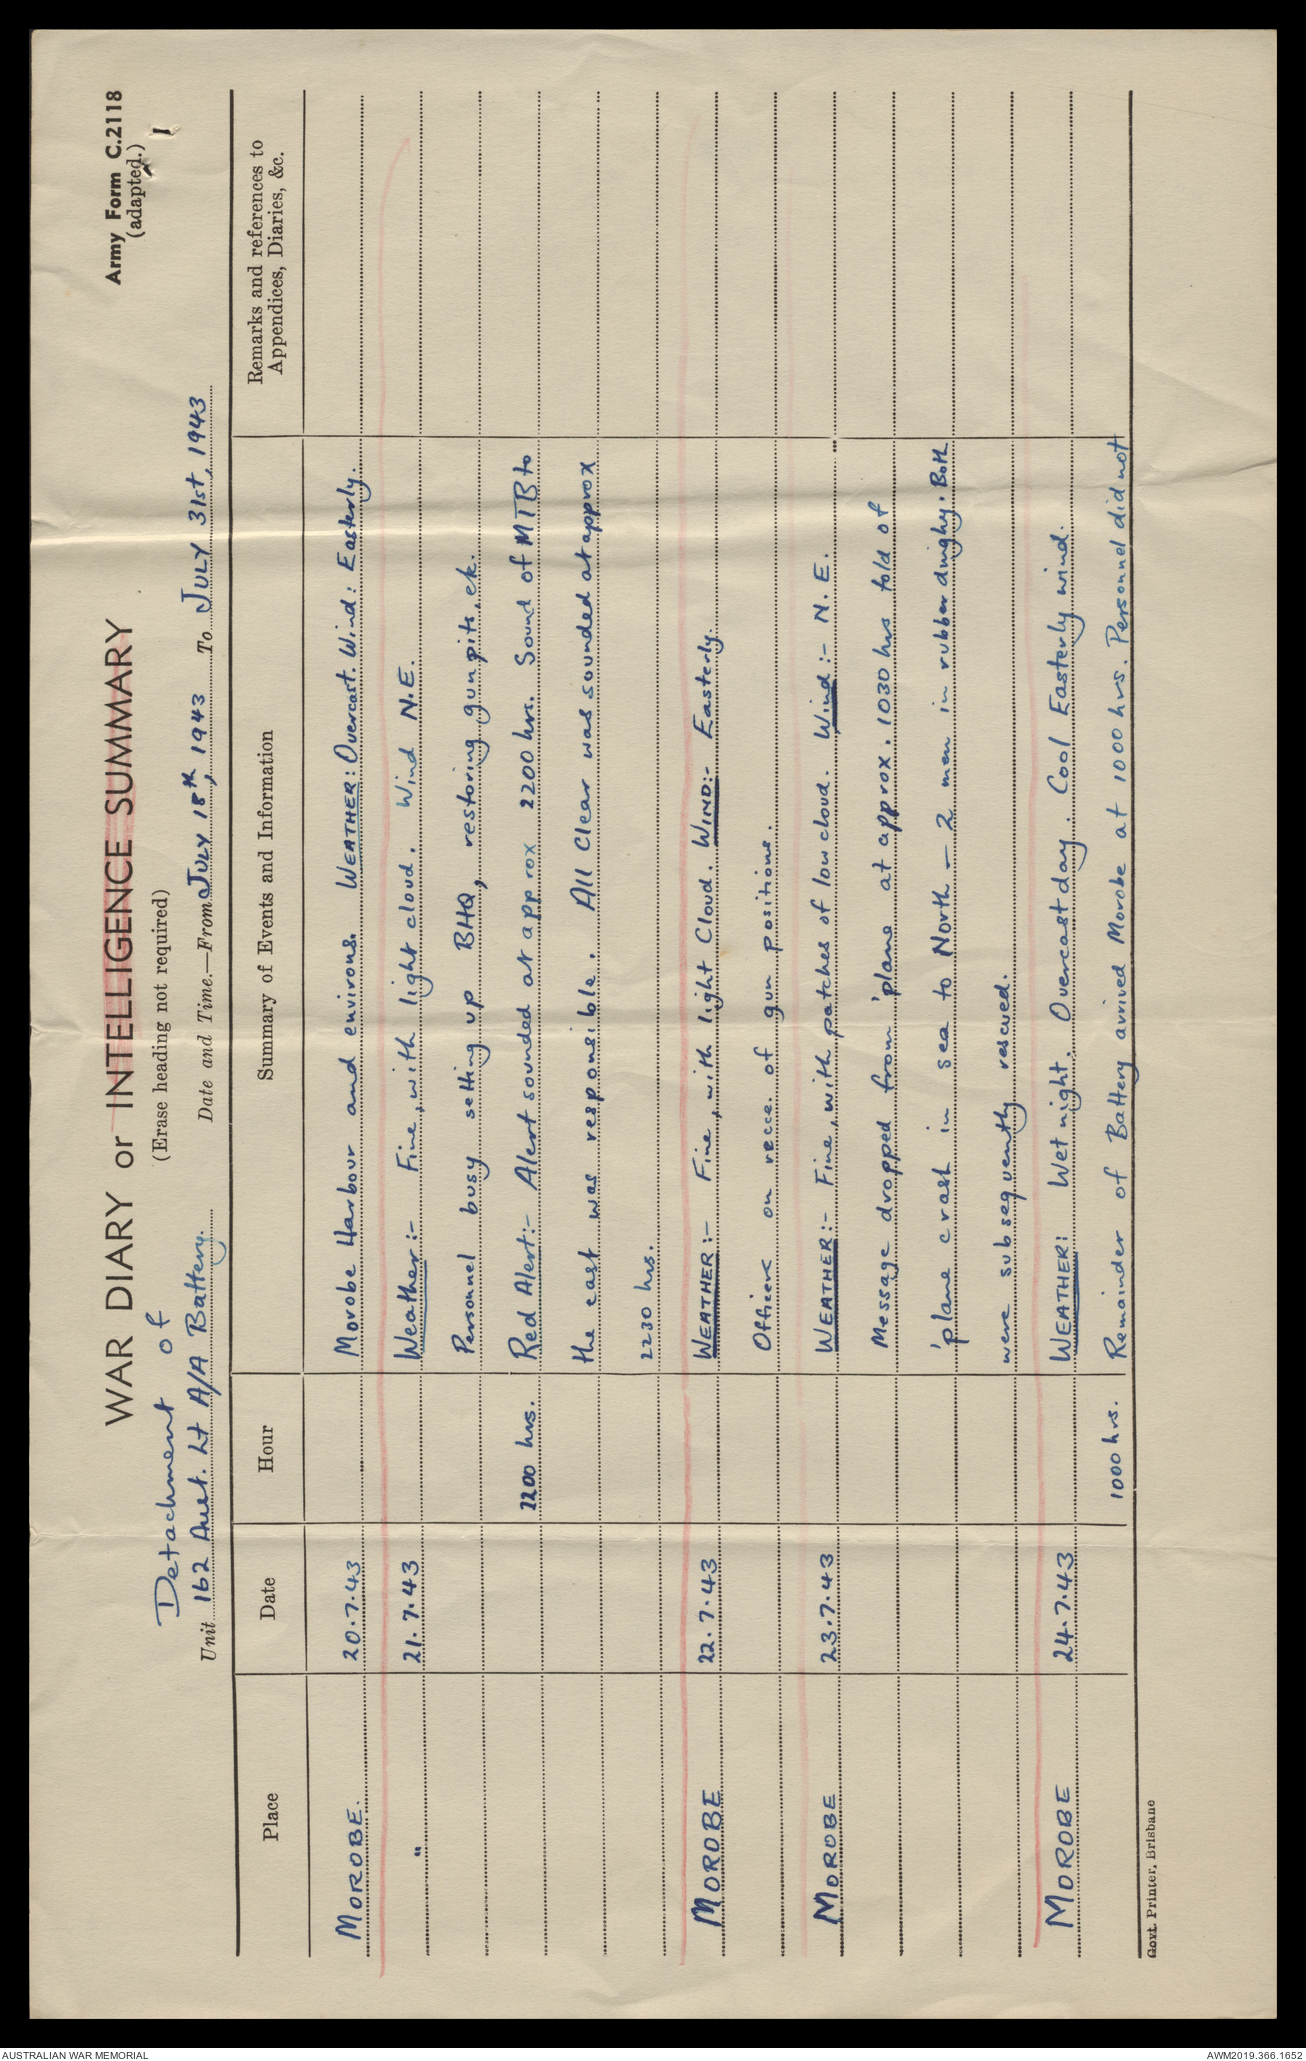 Army Form C.2118
(adapted.)
1
WAR DIARY or INTELLIGENCE SUMMARY
(Erase heading not required)
Detachment of
Unit 162 Aust. Lt A/A Battery. Date and Time.—From JULY 18th, 1943 To JULY 31st, 1943
Place Date Hour Summary of Events and Information Remarks and references to
Appendices, Diaries, &c.
MOROBE. 20.7.43 Morobe Harbour and environs. WEATHER: Overcast. Wind: Easterly.
" 21.7.43 Weather:- Fine, with light cloud. Wind N.E.
Personnel busy setting up BHQ, restoring gun pits, etc.
2200 hrs. Red Alert:- Alert sounded at approx 2200 hrs. Sound of MTB to
the east was responsible. All Clear was sounded at approx
2230 hrs.
MOROBE 22.7.43 WEATHER:- Fine, with light Cloud. WIND:- Easterly.
Officers on recce. of gun positions.
MOROBE 23.7.43 WEATHER:- Fine, with patches of low cloud. Wind:- N.E.
Message dropped from 'plane at approx. 1030 hrs told of
'plane crash in sea to North — 2 men in rubber dinghy. Both
were subsequently rescued.
MOROBE 24.7.43 WEATHER: Wet night. Overcast day. Cool Easterly wind.
1000 hrs. Remainder of Battery arrived Morobe at 1000 hrs. Personnel did not
Govt. Printer, Brisbane
AUSTRALIAN WAR MEMORIAL
AWM2019.366.1652